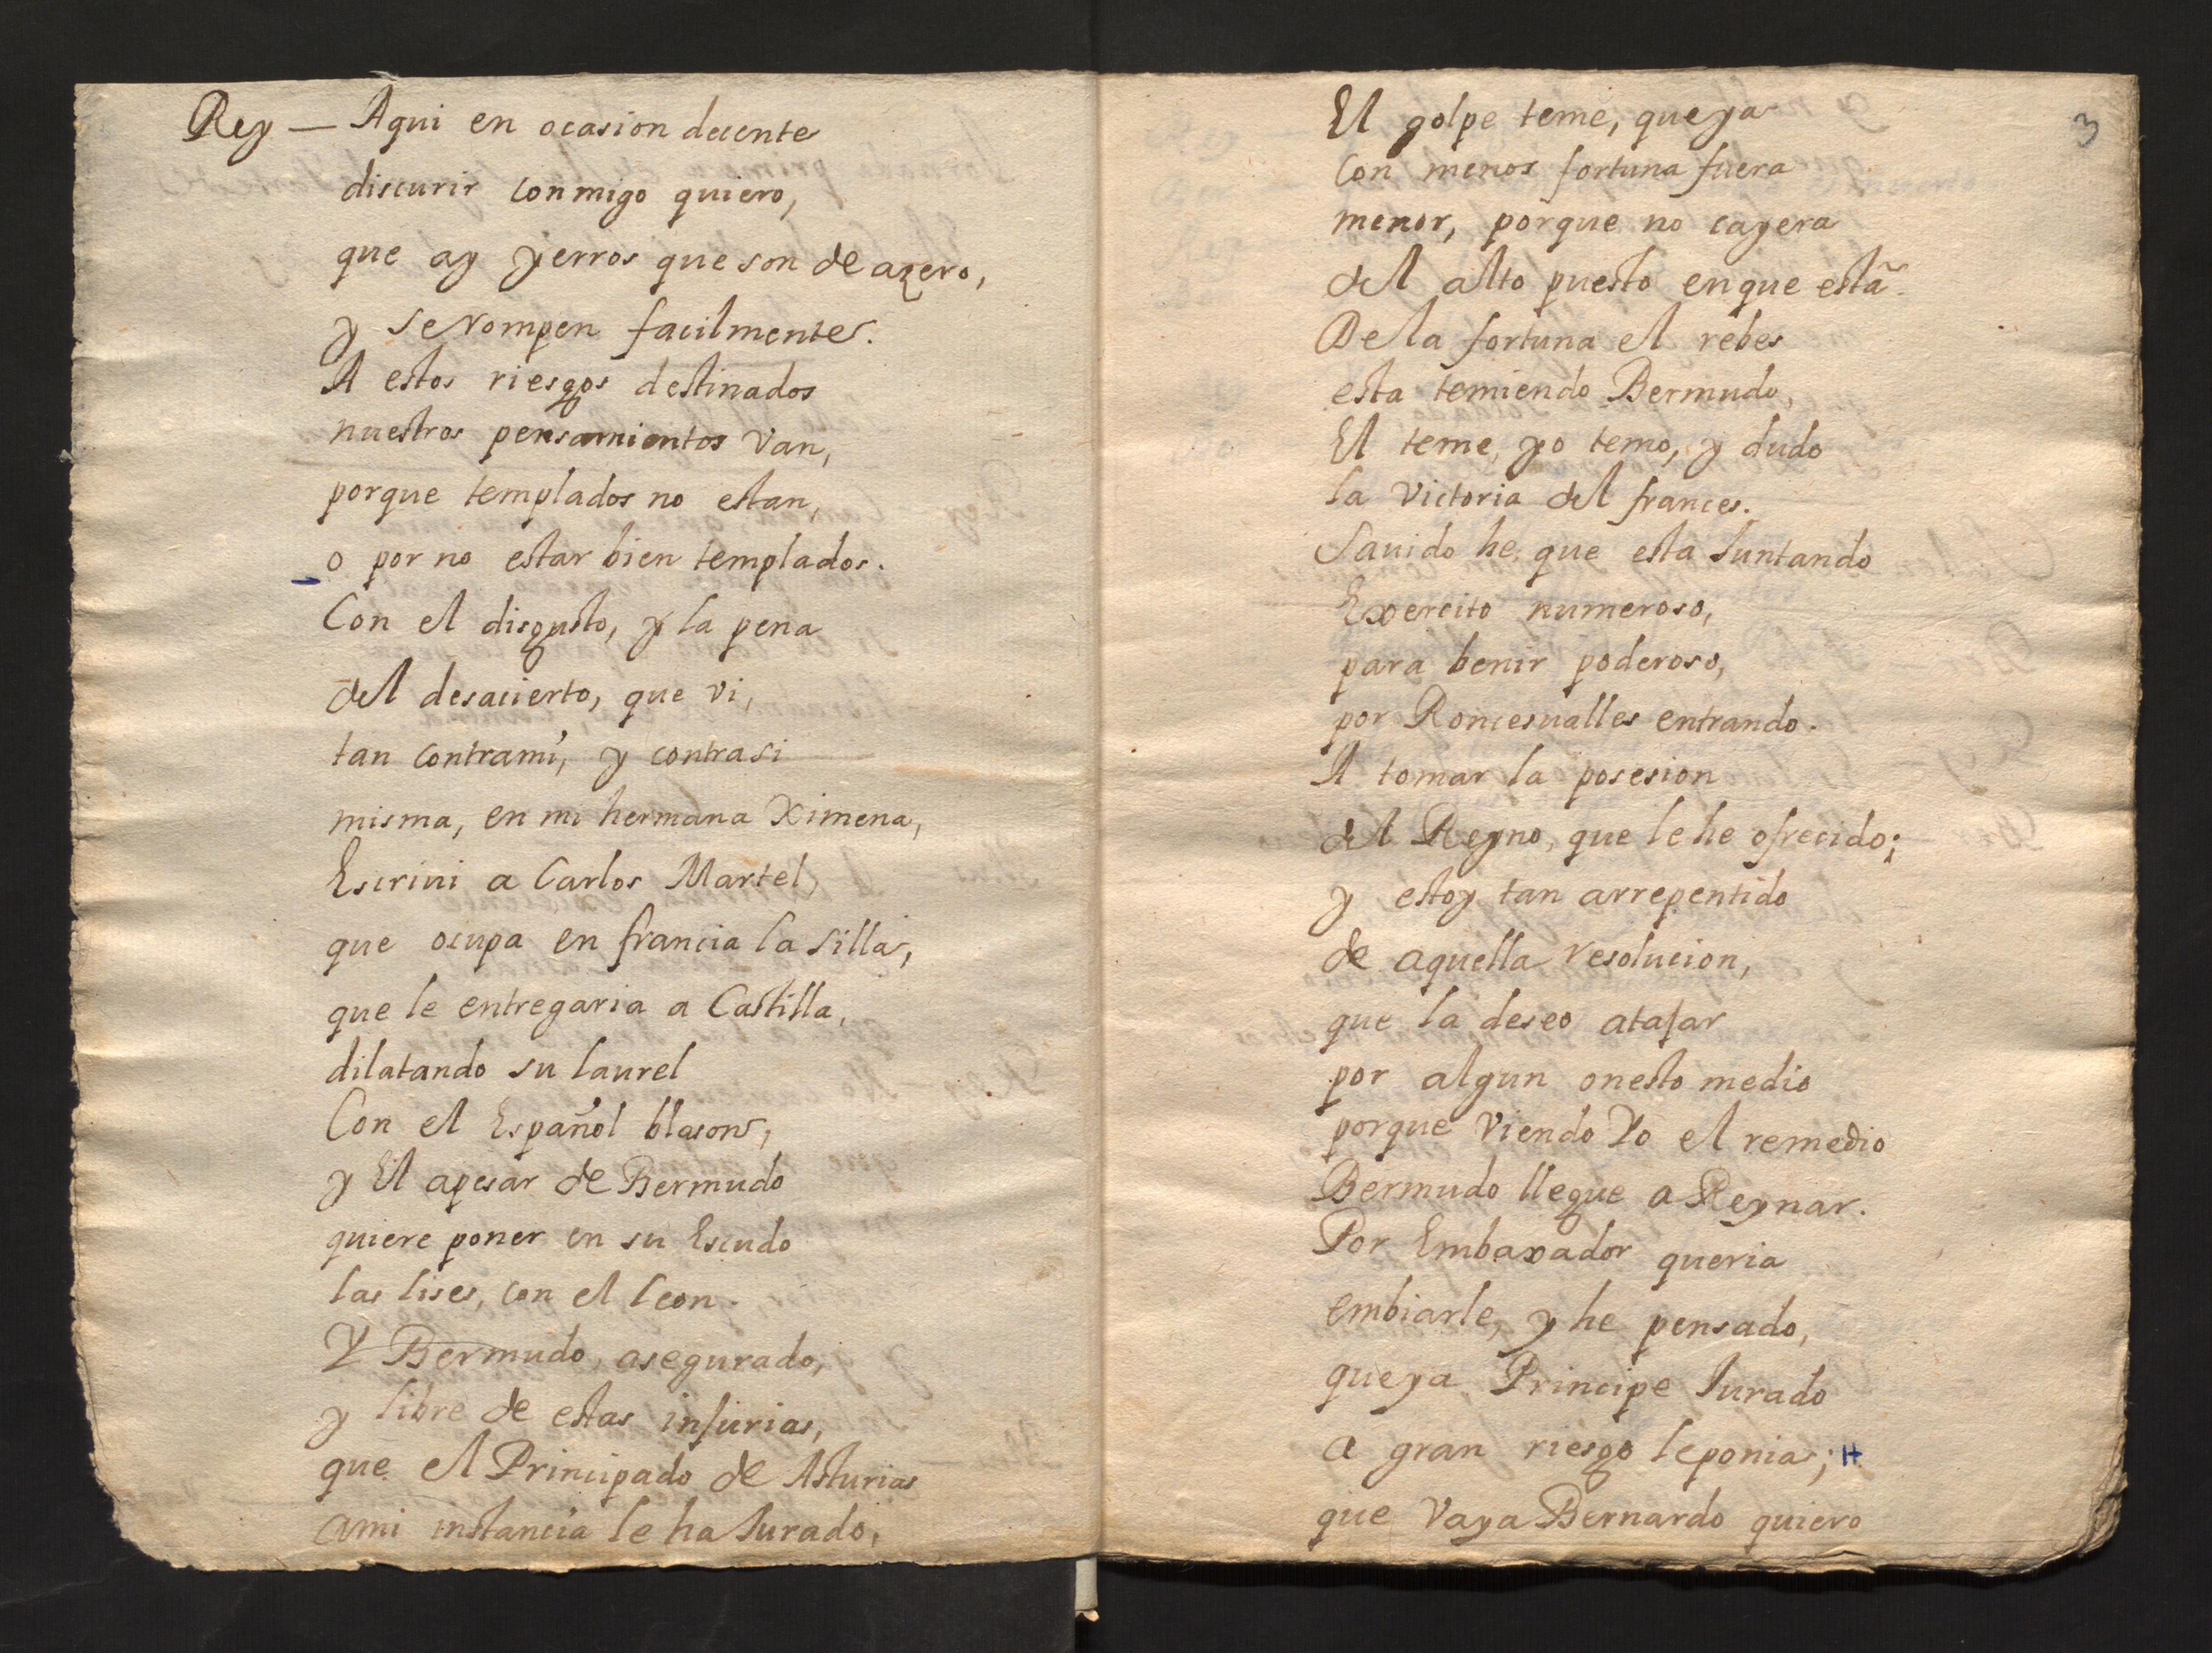 Rey — Aqui en ocasion decente
discurir conmigo quiero,
que ay yerros que son de azero,
y se rompen facilmente.
A estos riesgos destinados
nuestros pensamientos van,
porque templados no estan,
o por no estar bien templados.
Con el disgusto, y la pena
del desacierto, que vi,
tan contrami, y contrasi
misma, en mi hermana Ximena,
Escriui a Carlos Martel,
que ocupa en francia la silla,
que le entregaria a Castilla,
dilatando su laurel
Con el Español blason,
y El apesar de Bermudo
quiere poner en su Escudo
las lises, con el leon.
Y Bermudo, asegurado,
y libre de estas injurias,
que el Principado de Asturias
ami instancia le ha Jurado,
3
El golpe teme, que ya
con menos fortuna fuera
menor, porque no cayera
del alto puesto en que està.
De la fortuna el rebes
esta temiendo Bermudo,
El teme, yo temo, y dudo
la victoria del frances.
Sauido he, que esta Juntando
Exercito numeroso,
para benir poderoso,
por Roncesualles entrando.
A tomar la posesion
del Reyno, que le he ofrecido;
y estoy tan arrepentido
de aquella resolucion,
que la deseo atajar
por algun onesto medio
porque viendo Yo el remedio
Bermudo llegue a Reynar.
Por Embaxador queria
embiarle, y he pensado,
que ya Principe Jurado
a gran riesgo le ponia; H
que vaya Bernardo quiero